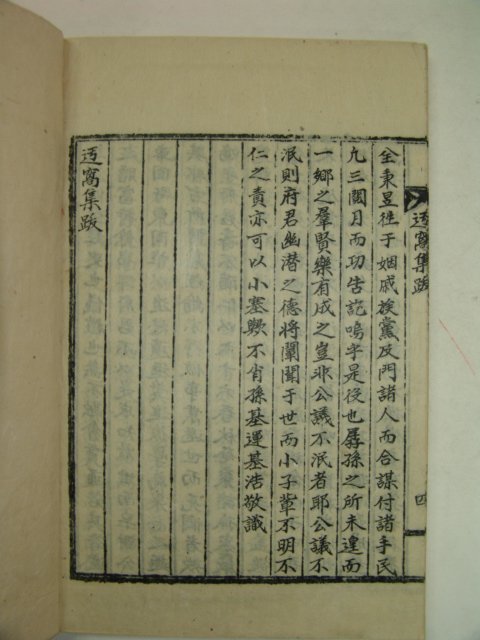 迃窩集跋
四
全秉昱徃于姻戚族黨及門諸人而合謀付諸手民
九三閱月而功告訖嗚乎是役也孱孫之所未遑而
一鄕之羣賢樂有成之豈非公議不泯者耶公議不
泯則府君幽潜之德將闡聞于世而小子軰不明不
仁之責亦可以小塞歟不肖孫基運基浩敬識
迃窩集跋